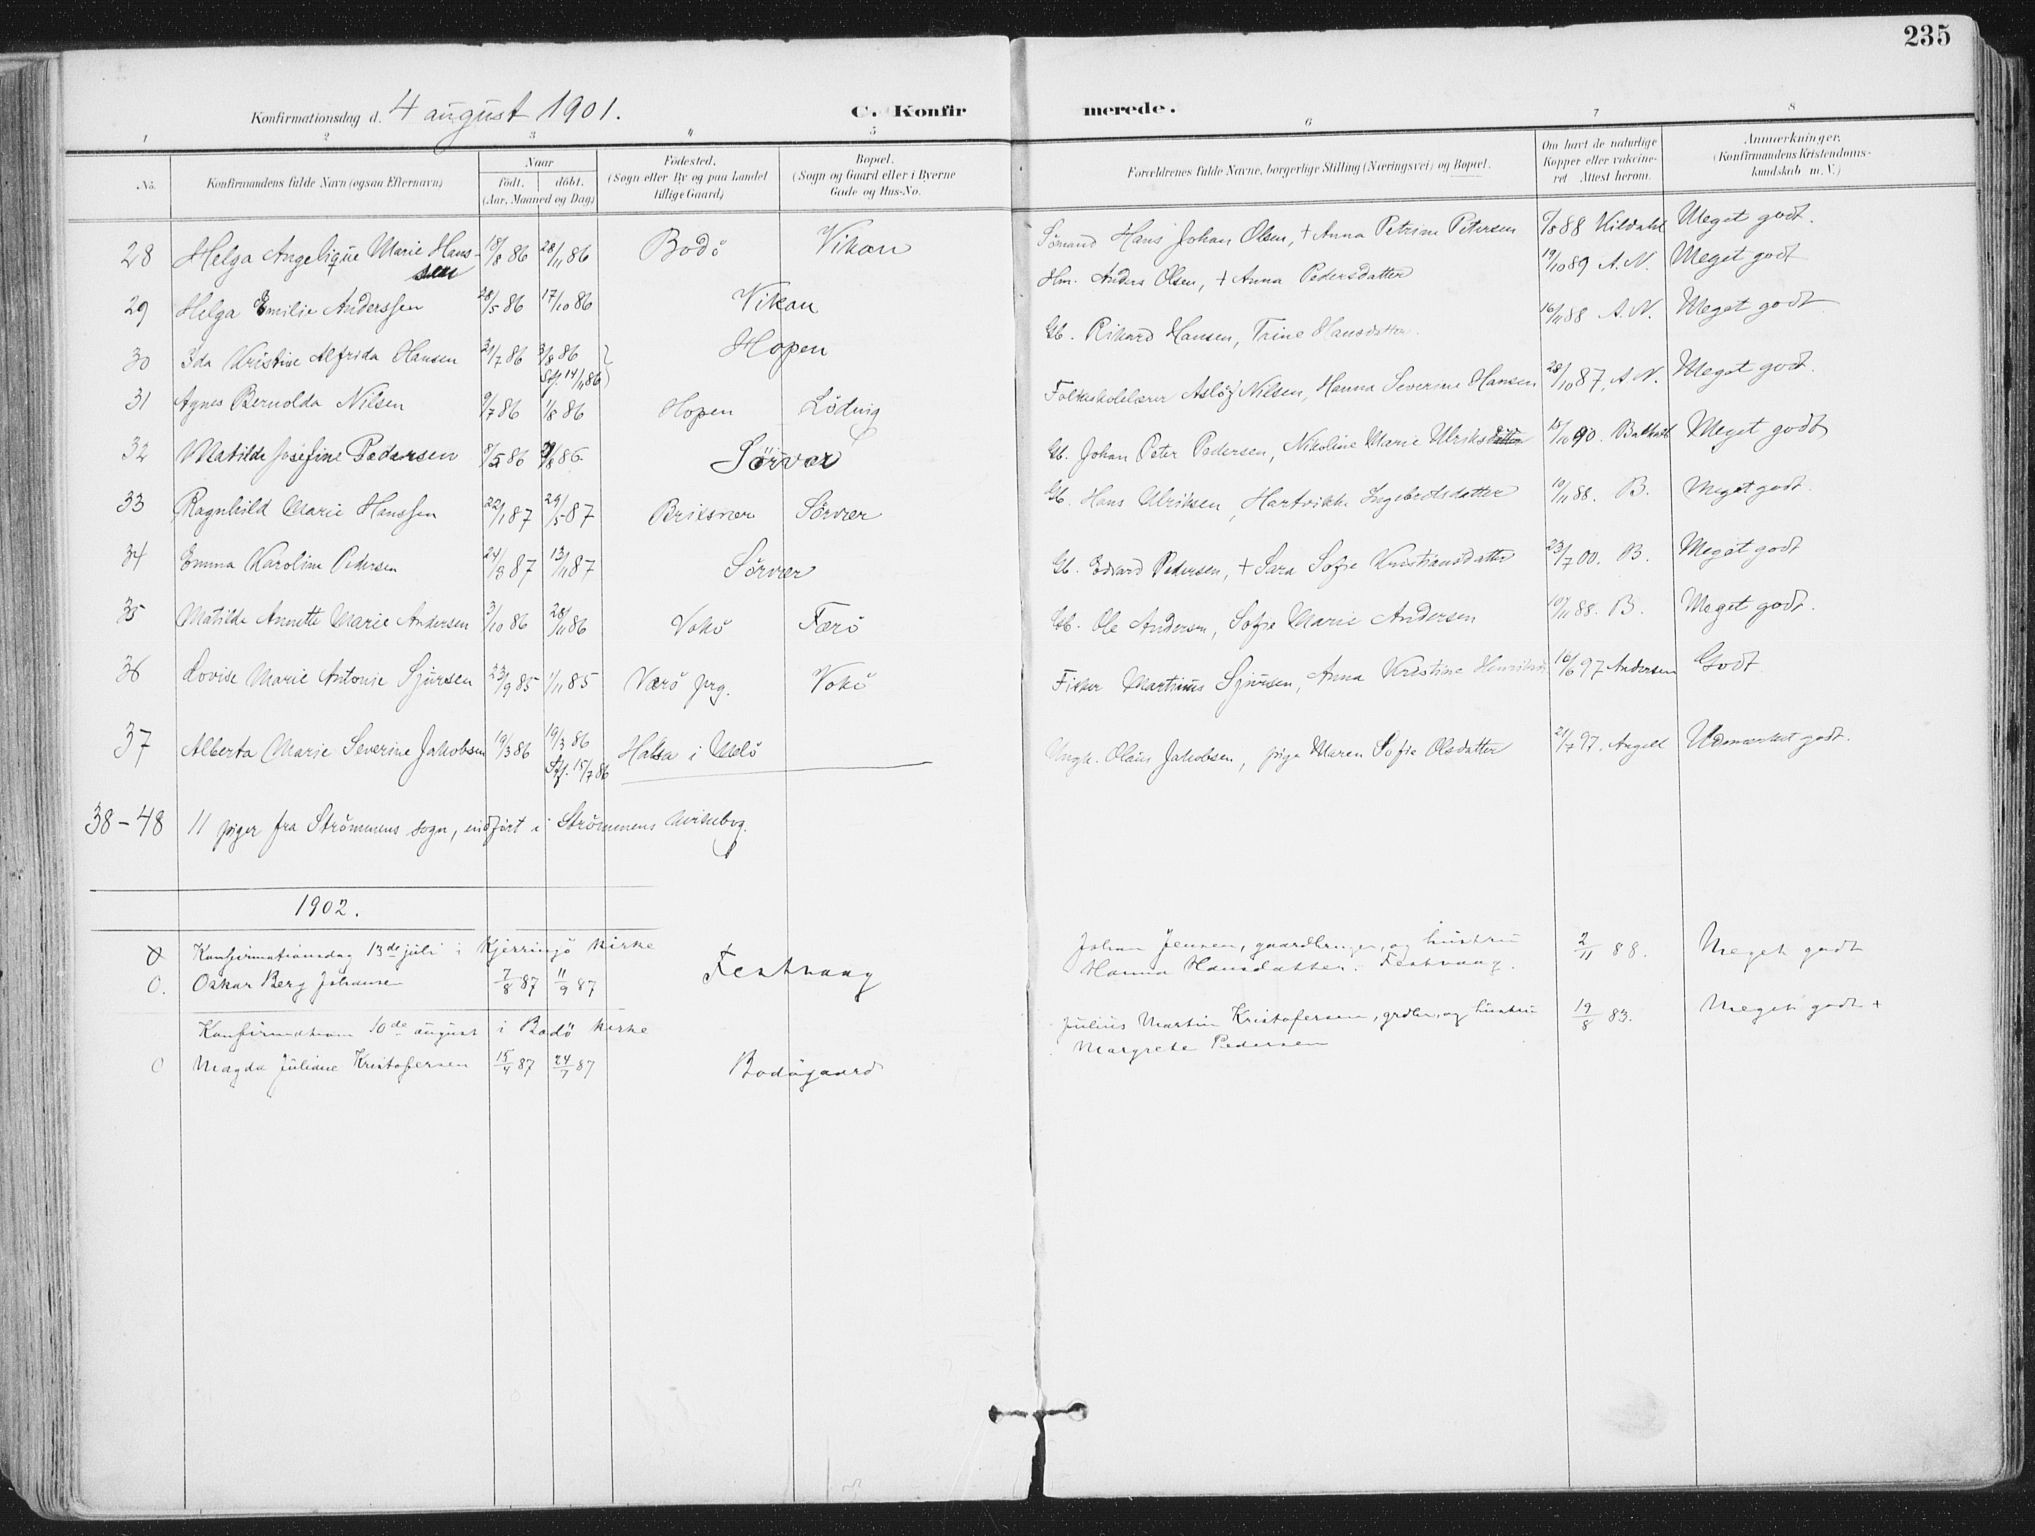 235
Konfirmationsdag d. 4 august 1901. C. Konfirmerede.
1 2 3 4 5 6 7 8
No. Konfirmandens fulde Navn (ogsaa Efternavn) Naar født. døbt. (Aar, Maaned og Dag) Fødested. (Sogn eller By og paa Landet tillige Gaard) Bopæl. (Sogn og Gaard eller i Byerne Gade og Hus-No. Forældrenes fulde Navne, borgerlige Stilling (Næringsvei) og Bopæl. Om havt de naturlige Kopper eller vakcineret Attest herom. Anmærkninger. (Konfirmandens Kristendomskundskab m. V.)
28 Helga Angelique Marie Hanssen 18/8 86 28/11 86 Bodø Vikan Sømand Hans Johan Olsen, + Anna Petrine Petersen 88 Kildahl Meget godt.
29 Helga Emilie Anderssen 28/5 86 17/10 86 Vikan Hm. Anders Olsen, + Anna Pedersdatter 19/10 89 A. N. Meget godt
30 Ida Kristine Alfrida Hansen 31/7 86 3/8 86 Stf. 14/11 86 Hopen Gb. Rikard Hansen, Trine Hansdatter. 16/11 88 A. N. Meget godt
31 Agnes Bernolda Nilsen 9/7 86 1/8 86 Hopen Løding Folkeskolelærer Asløj Nilsen, Hanna Severine Hansen 28/10 87. A N. Meget godt.
32 Matilde Josefine Pedersen 8/5 86 86 Sørvær Gb. Johan Peter Pedersen, Nikoline Marie Ulriksdatter 90. Meget godt
33 Ragnhild Marie Hanssen 22/1 87 29/5 87 Briksvær Sørvær Gb. Hans Ulriksen, Hartvikke Ingebretsdatter 19/11 88. B. Meget godt.
34 Emma Karoline Pedersen 24/3 87 13/11 87 Sørvær Gb. Edvard Pedersen, + Sara Sofie Kristiansdatter 23/7 00. B. Meget godt
35 Matilde Annette Marie Andersen 3/10 86 28/11 86 Vokø Færø Gb. Ole Andersen, Sofie Marie Andersen 19/11 88. B. Meget godt.
36 Lovise Marie Antonie Sjursen 23/9 85 1/11 85 Værø prg. Vokø Fisker Martinus Sjursen, Anna Kristine 16/6 97 Andersen Godt
37 Alberta Marie Severine Jakobsen 19/3 86 19/3 86 Stf. 15/7 86 Halsa i Melø Ungk. Olaus Jakobsen, pige Maren Sofie Olsdatter 21/7 97. Angell Udmærket godt.
38-48 11 piger fra Strømmens sogn, indført i Strømmens kirkebog.
1902.
Konfirmationsdag 13de juli i Kjerringø kirke
0. Oskar Berg Johansen 7/8 87 11/9 87 Festvaag Johan Jensen, gaardbruger, og hustru Hanna Hansdatter. Festvaag. 2/11 88. Meget godt
Konfirmation 10de august i Bodø kirke
0 Magda Juliane Kristofersen 15/4 87 24/7 87 Bodøgaard Julius Martin Kristofersen, grdbr, og hustru Margrete Pedersen 19/8 83. Meget godt +